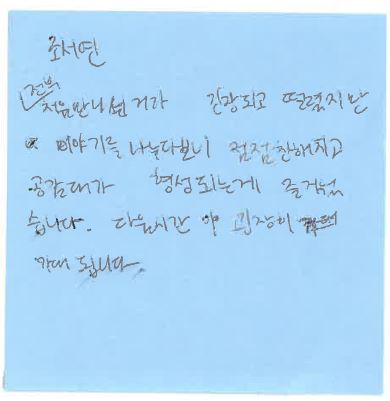 조서연
전부
처음만나는 거라 긴장되고 떨렸지만
이야기를 나누다보니 점점 친해지고
공감대가 형성되는게 즐거웠
습니다. 다음시간이 굉장히
기대 됩니다